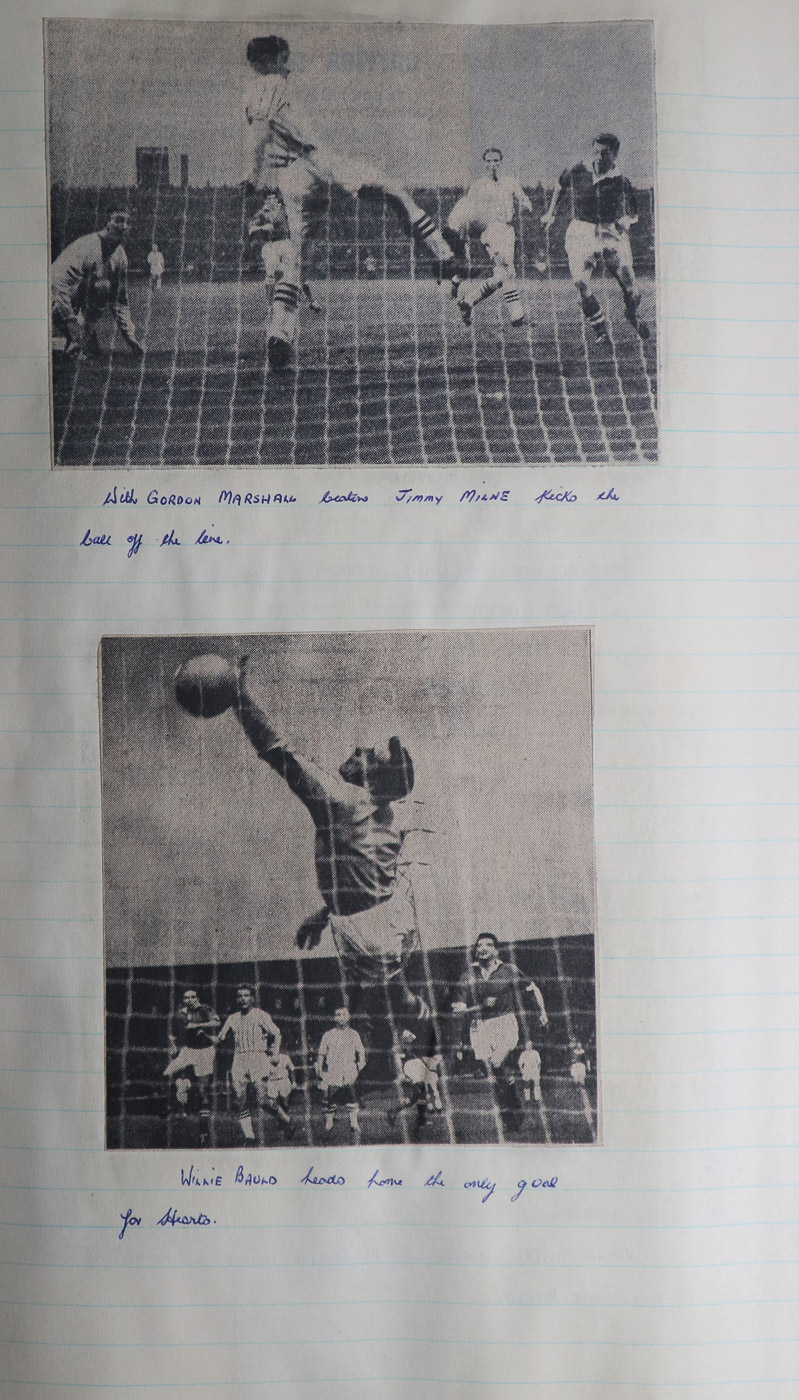 With GORDON MARSHALL beaten JIMMY MILNE kicks the
ball off the line.
WILLIE BAULD heads home the only goal
for Hearts.